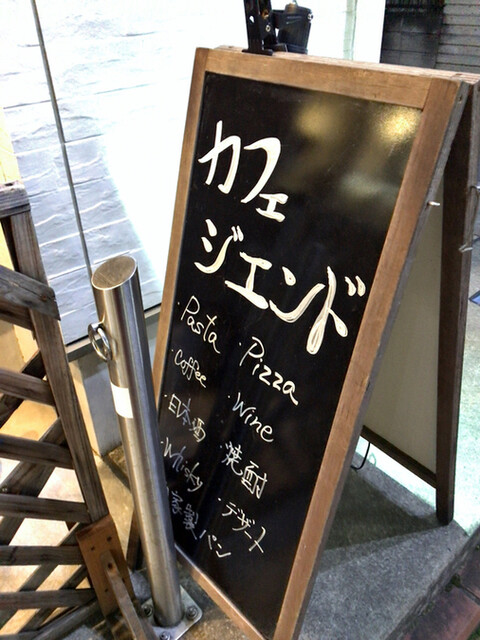 カフェ
ジエンド
・Pasta
・Pizza
・Coffee
・Wine
・日本酒
・焼酎
・Whisky
・デザート
・家製パン